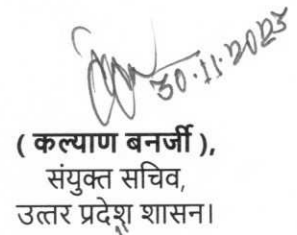 30.11.2023
( कल्याण बनर्जी ),
संयुक्त सचिव,
उत्तर प्रदेश शासन।